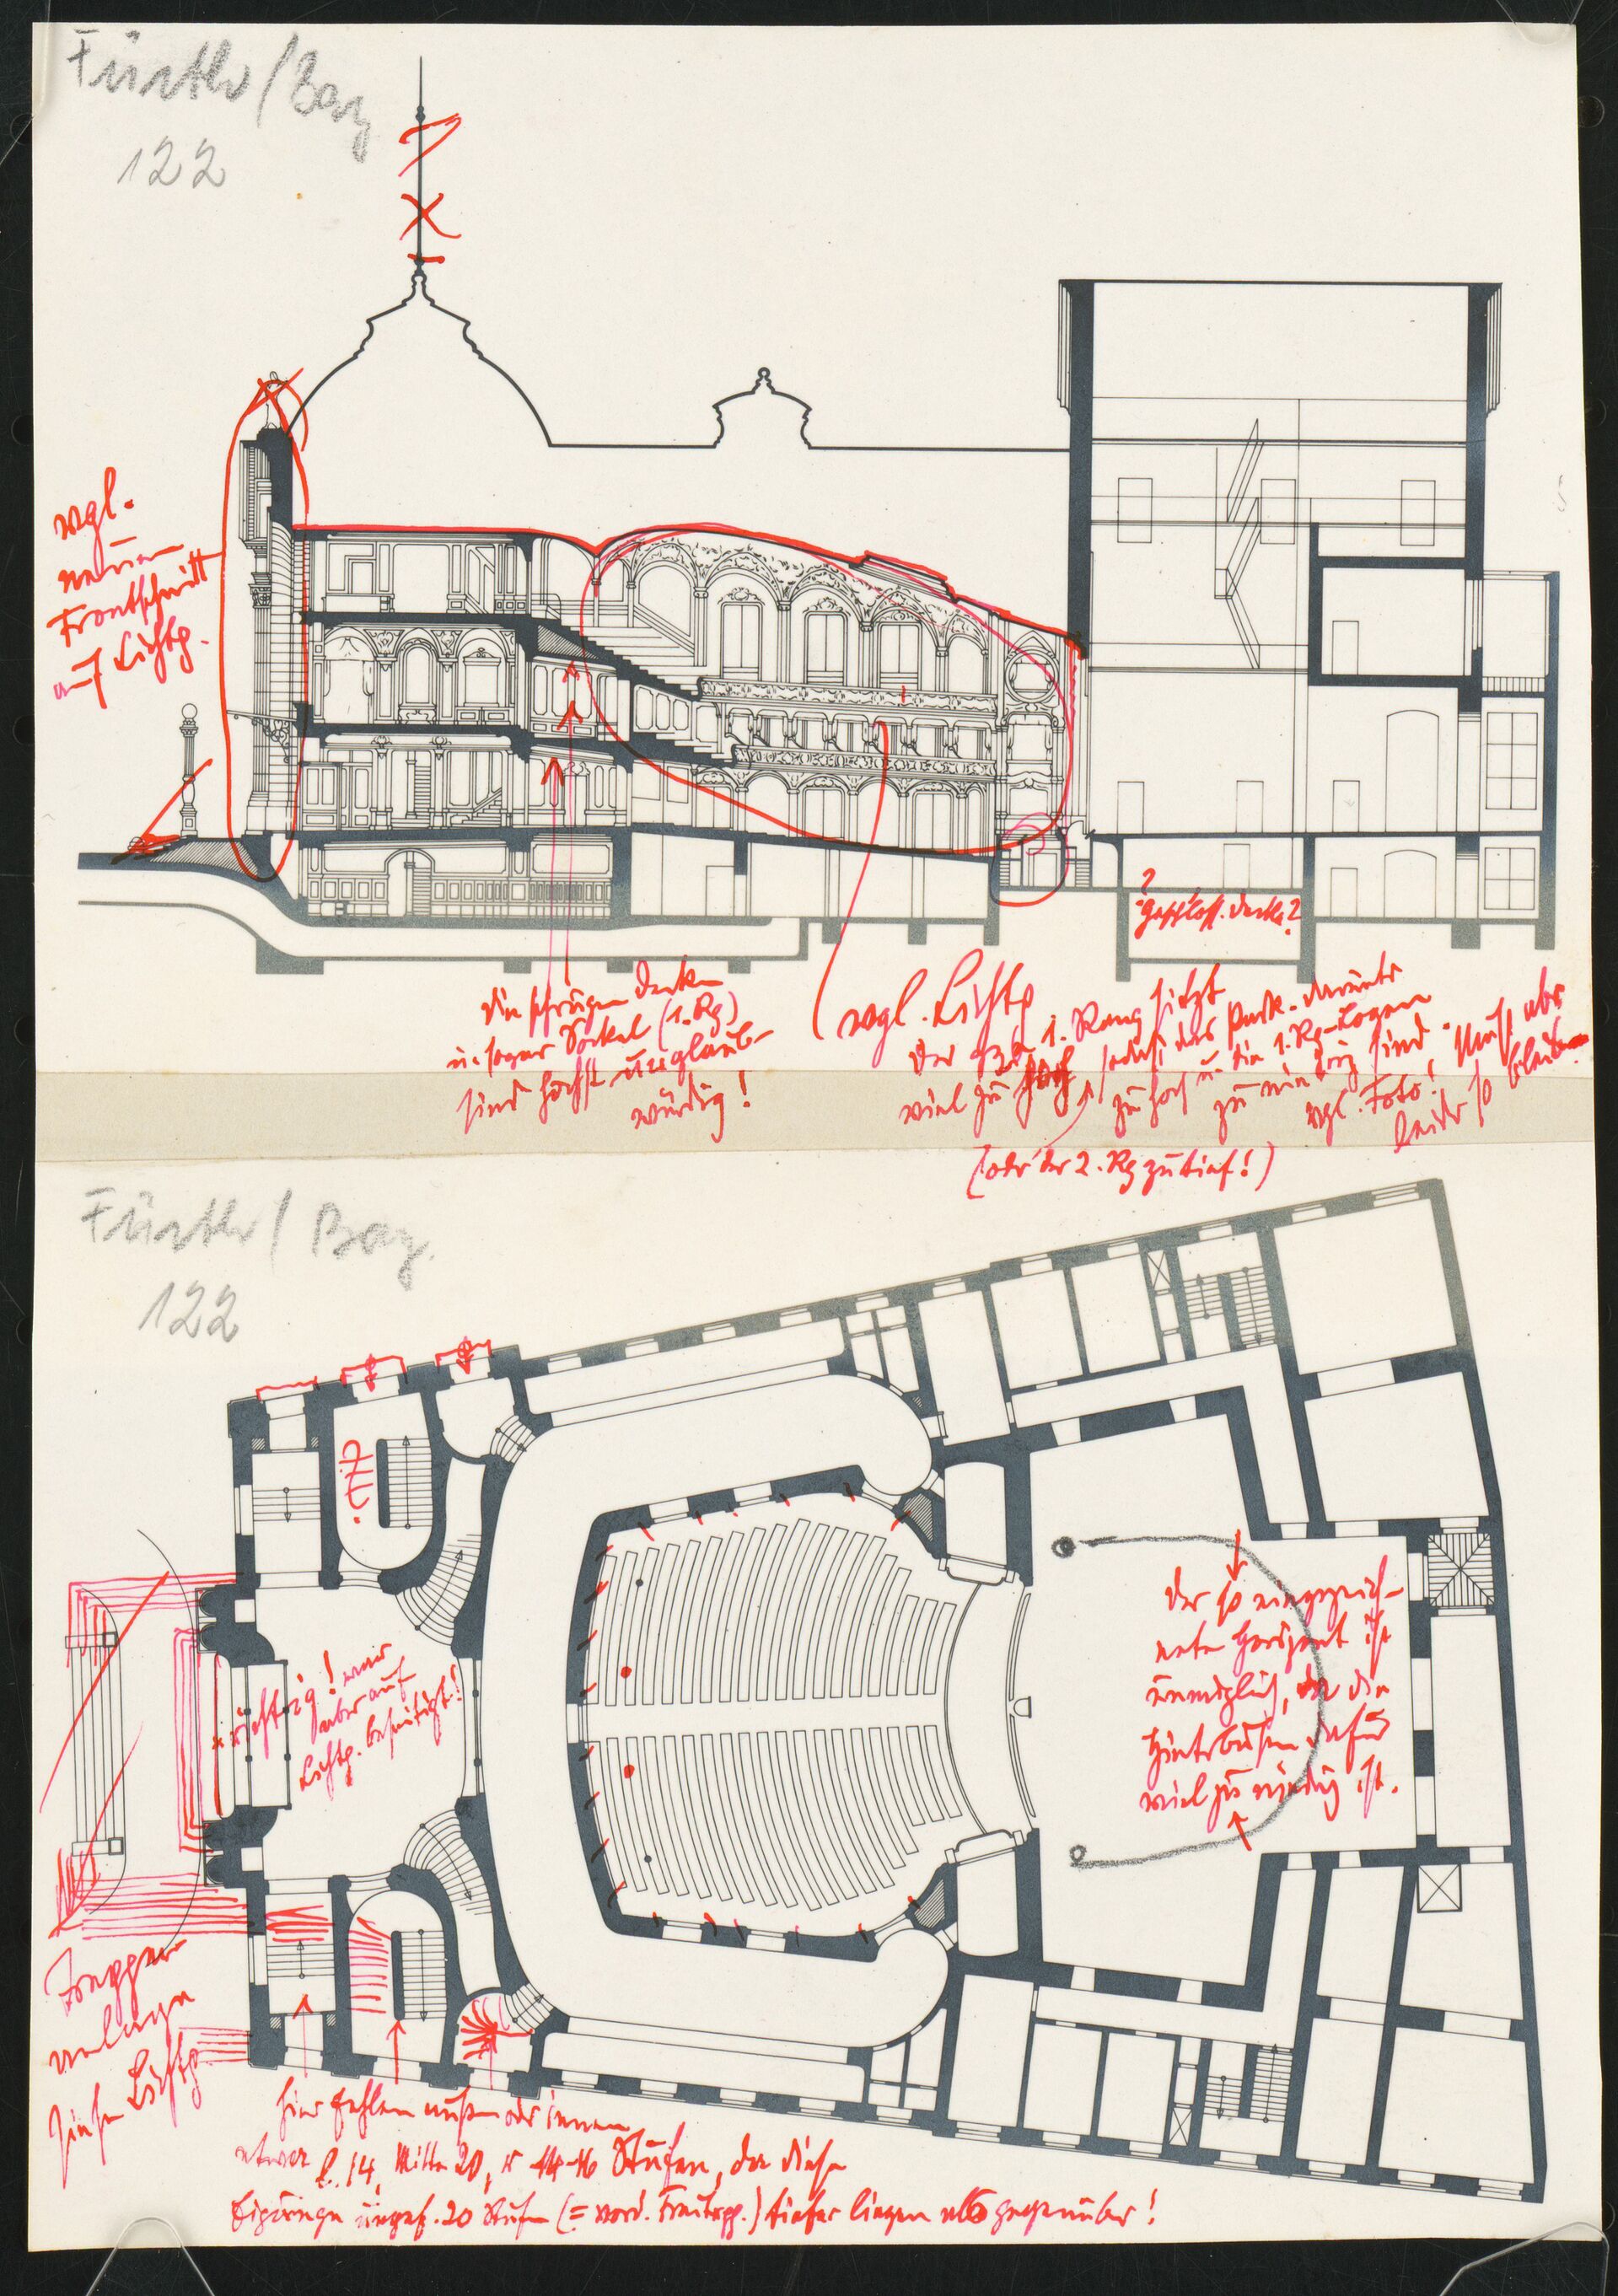 Fürth / Bay
122
vgl.
neuen
Frontschnitt
auf Lichtp.
?
Geschloss. Decke?
die schrägen Decken
u. sogar Sockel (1. Rg)
sind höchst unglaub-
würdig!
vgl. Lichtp
Der 1. Rang sitzt
viel zu hoch, sodaß das Park. darunter
zu hoch u. die 1. Rg-Logen
zu niedrig sind.
vgl. Foto! Muß aber
leider so bleiben
(oder der 2. Rg zu tief!)
Fürth / Bay.
122
?!?!?
richtig! nur
aber auf
Lichtp. beseitigt!
der so eingezeich-
nete Horizont ist
unmöglich, da die
Hinterbühne dafür
viel zu niedrig ist.
Treppen
anlage
siehe Lichtp
hier fehlen außen oder innen
etwa l. 14, Mitte 20, r 14-16 Stufen, da diese
Eingänge ungef. 20 Stufen (= vord. Freitrepp.) tiefer liegen als gegenüber!